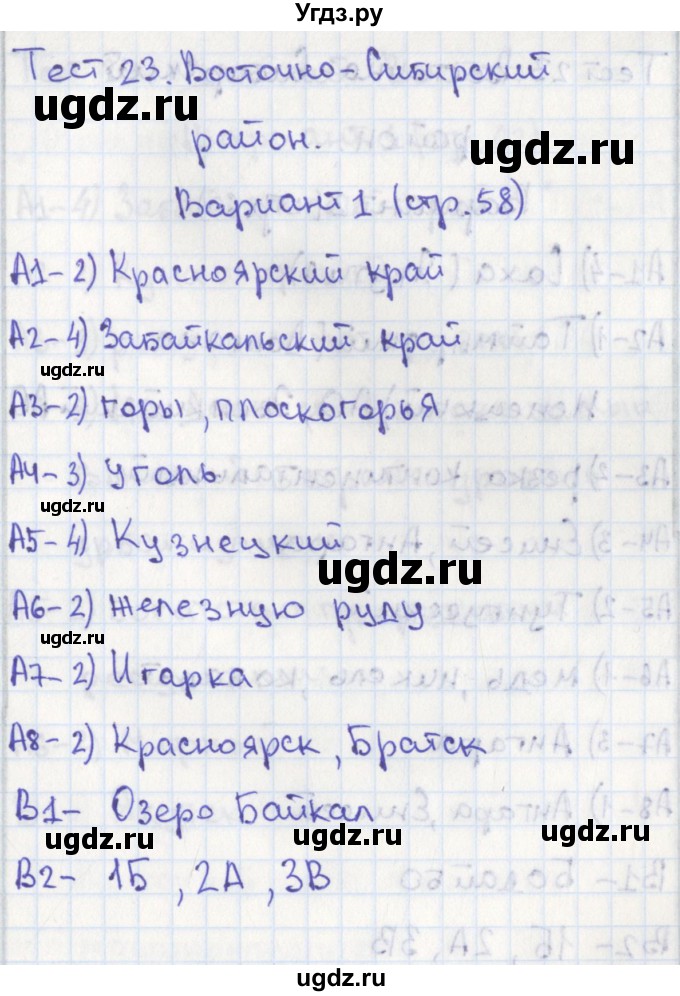 Угдз.ру
Тест 23. Восточно-Сибирский
ugdz.ru
район.
ugdz.ru
Вариант 1 (стр. 58)
А1- 2) Красноярский край
А2- 4) Забайкальский край
ugdz.ru
А3- 2) горы, плоскогорья
А4- 3) уголь
ugdz.ru
А5- 4) Кузнецкий
ugdz.ru
А6- 2) железную руду
ugdz.ru
А7- 2) Игарка
А8- 2) Красноярск, Братск
В1- Озеро Байкал
ugdz.ru ugdz.ru ugdz.ru
В2- 1Б, 2А, 3В
ugdz.ru